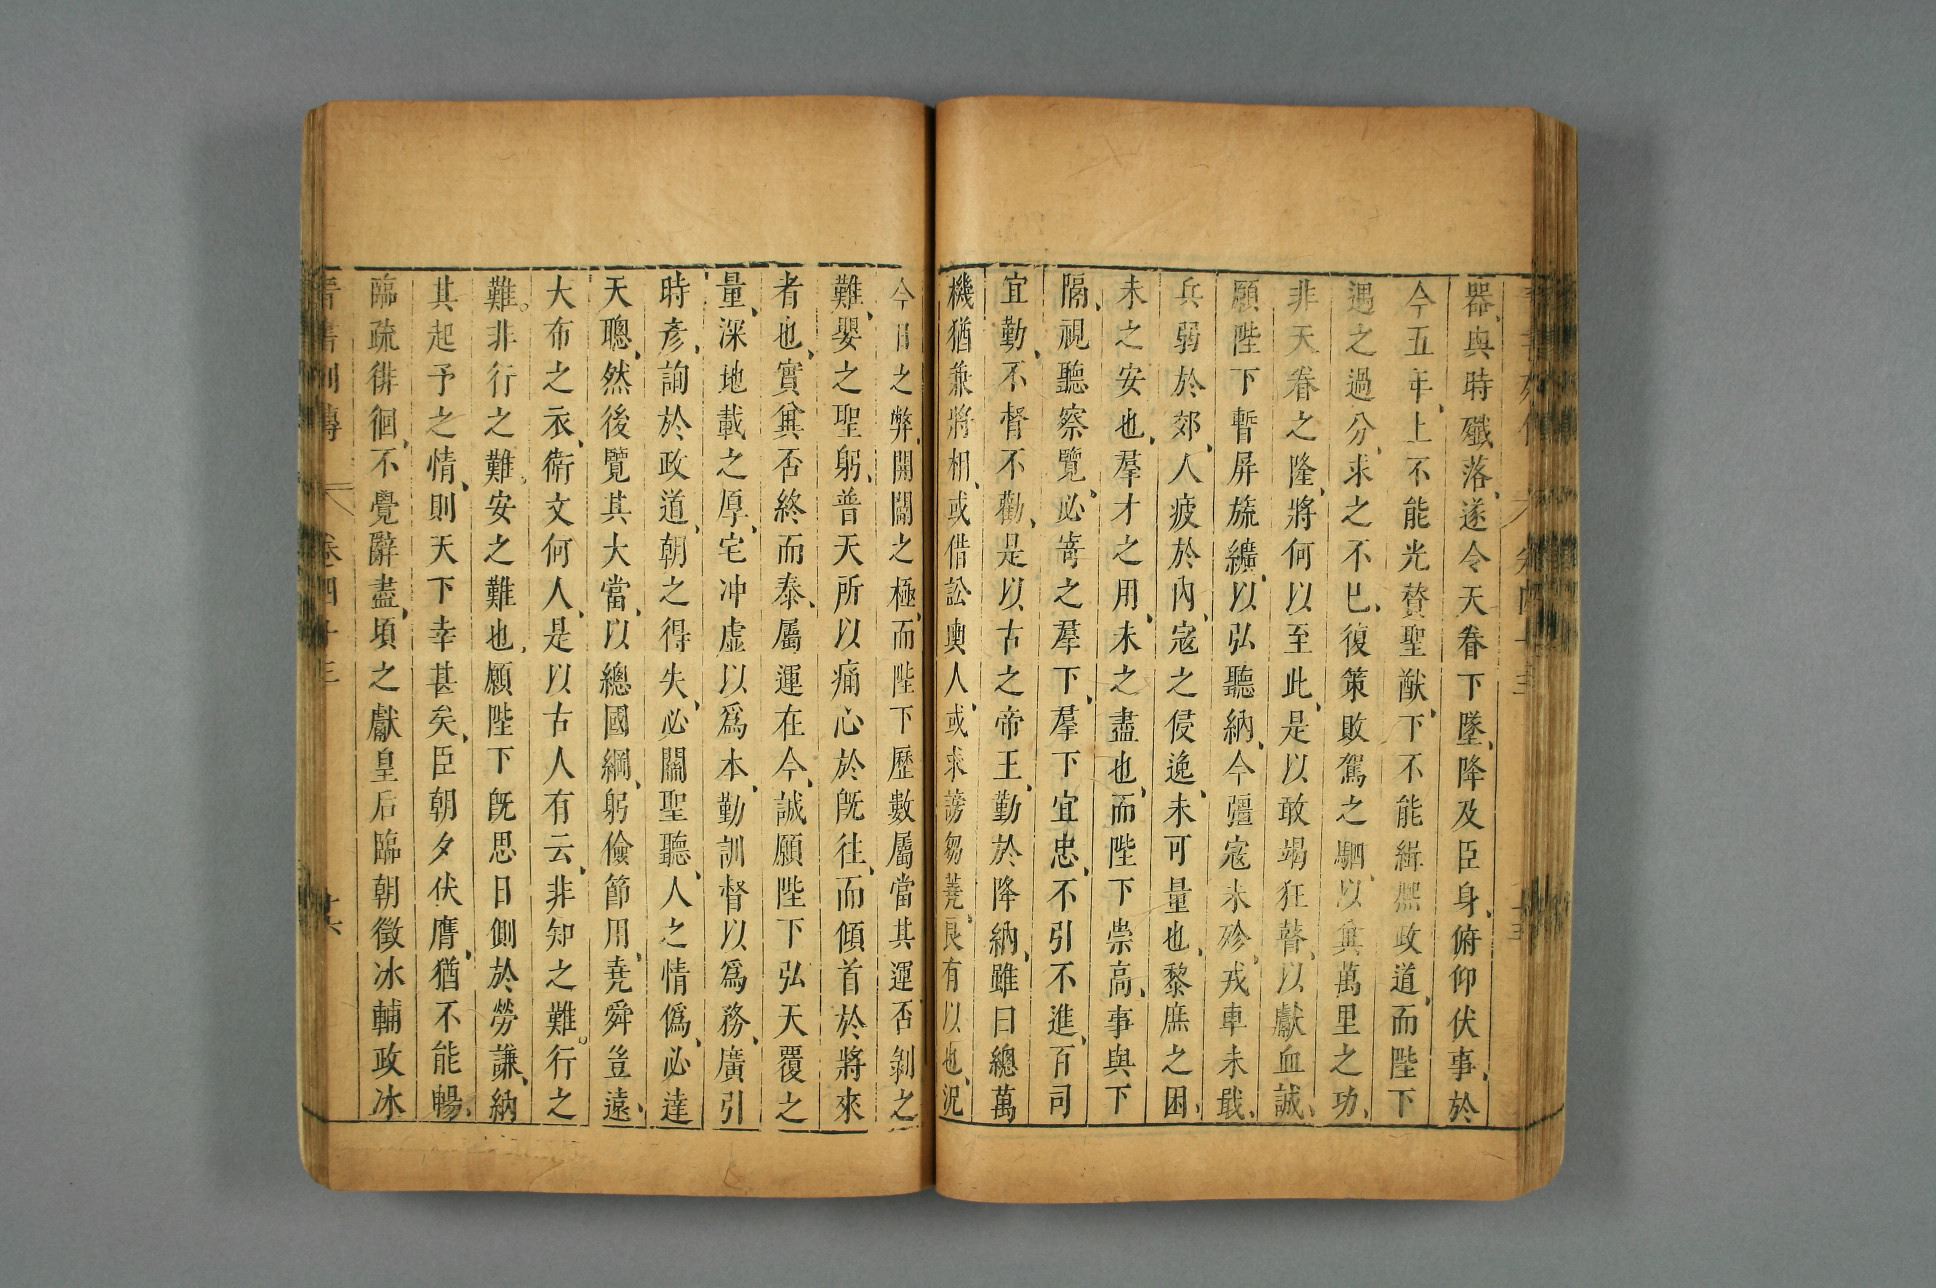 器與時殲落遂令天眷下墜降及臣身俯仰伏事於
今五年上不能光贊聖猷下不能緝熙政道而陛下
遇之過分求之不已復策敗駕之駟以冀萬里之功
非天眷之隆將何以至此是以敢竭狂瞽以獻血誠
願陛下暫屏旒纊以弘聽納今疆寇未殄戎車未戢
兵弱於郊人疲於內寇之侵逸未可量也黎庶之困
未之安也羣才之用未之盡也而陛下崇高事與下
隔視聽察覽必寄之羣下羣下宜忠不引不進百司
宜勤不督不勸是以古之帝王勤於降納雖曰總萬
機猶兼將相或借訟輿人或求謗芻蕘良有以也況
今日之弊開闢之極而陛下歷數屬當其運否剝之
難嬰之聖躬普天所以痛心於旣往而傾首於將來
者也實冀否終而泰屬運在今誠願陛下弘天覆之
量深地載之厚宅冲虛以爲本勤訓督以爲務廣引
時彥詢於政道朝之得失必關聖聽人之情僞必達
天聰然後覽其大當以總國綱躬儉節用堯舜豈遠
大布之衣衛文何人是以古人有云非知之難行之
難非行之難安之難也願陛下旣思日側於勞謙納
其起予之情則天下幸甚矣臣朝夕伏膺猶不能暢
臨疏徘徊不覺辭盡頃之獻皇后臨朝徵冰輔政冰
晉書列傳 卷四十三